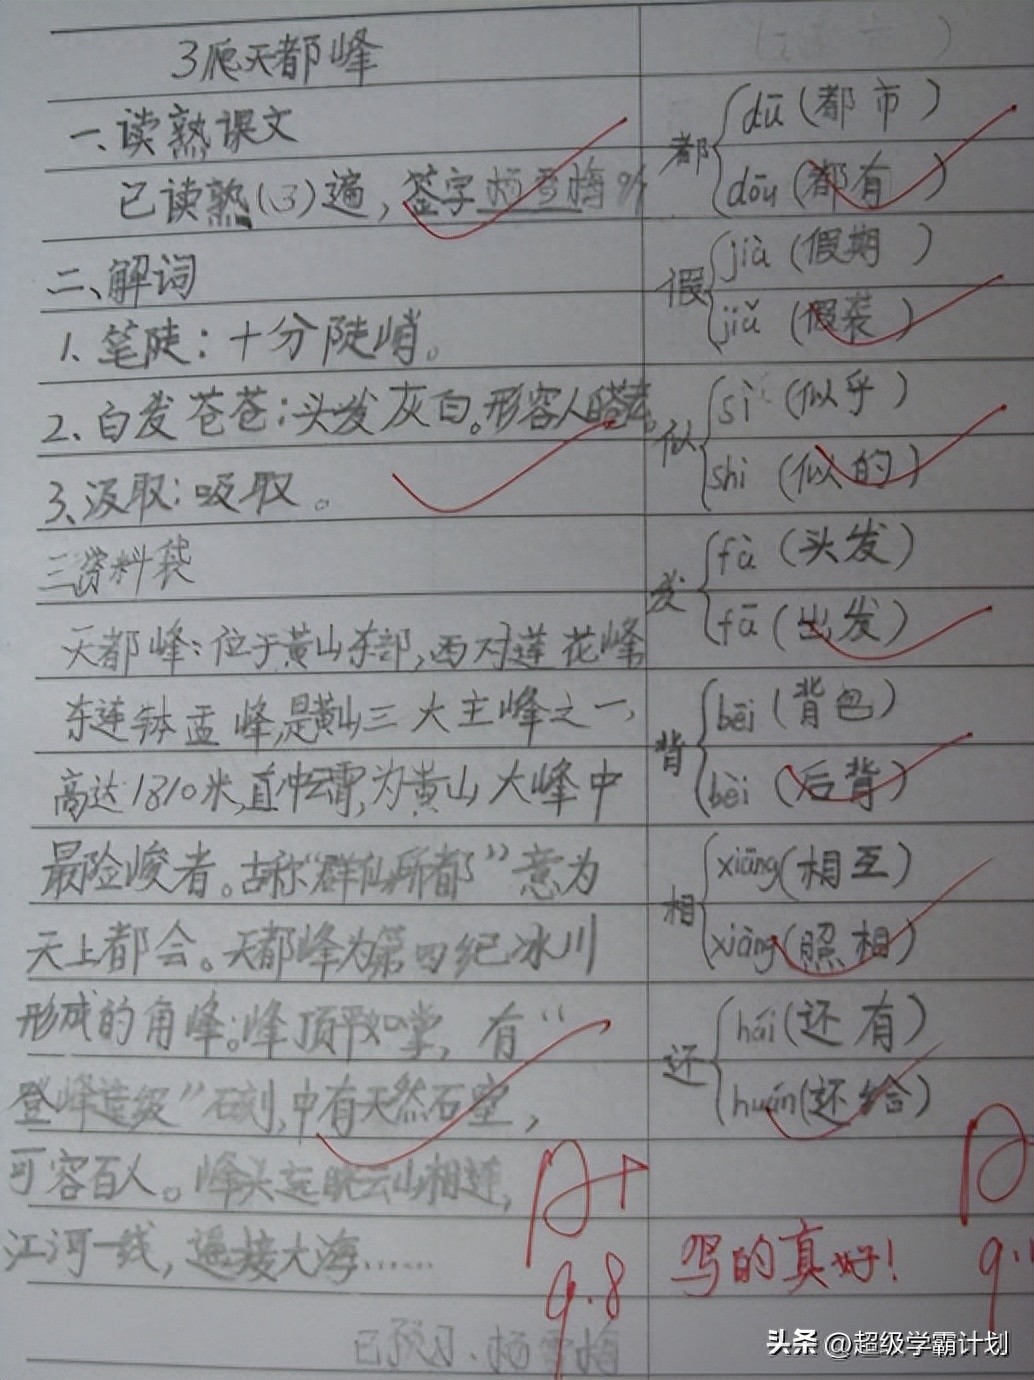 3爬天都峰
一、读熟课文
已读熟(3)遍,签字杨雪梅
二、解词
1、笔陡:十分陡峭。
2、白发苍苍:头发灰白。形容人
3、汲取:吸取。
三资料袋
天都峰:位于黄山东部,西对莲花峰
东连钵盂峰,是黄山三大主峰之一,
高达1810米,直冲云霄,为黄山大峰中
最险峻者。古称“群仙所都”意为
天上都会。天都峰为第四纪冰川
形成的角峰。峰顶平如掌,有“
登峰造极”石刻,中有天然石室,
可容百人。峰头远眺云山相连,
江河一线,遥接大海……
已预习.杨雪梅
A+
9.8
都
dū(都市)
dōu(都有)
假
jià(假期)
jiǎ(假装)
似
sì(似乎)
shì(似的)
发
fà(头发)
fā(出发)
背
bēi(背包)
bèi(后背)
相
xiāng(相互)
xiàng(照相)
还
hái(还有)
huán(还给)
写的真好!
头条@超级学霸计划